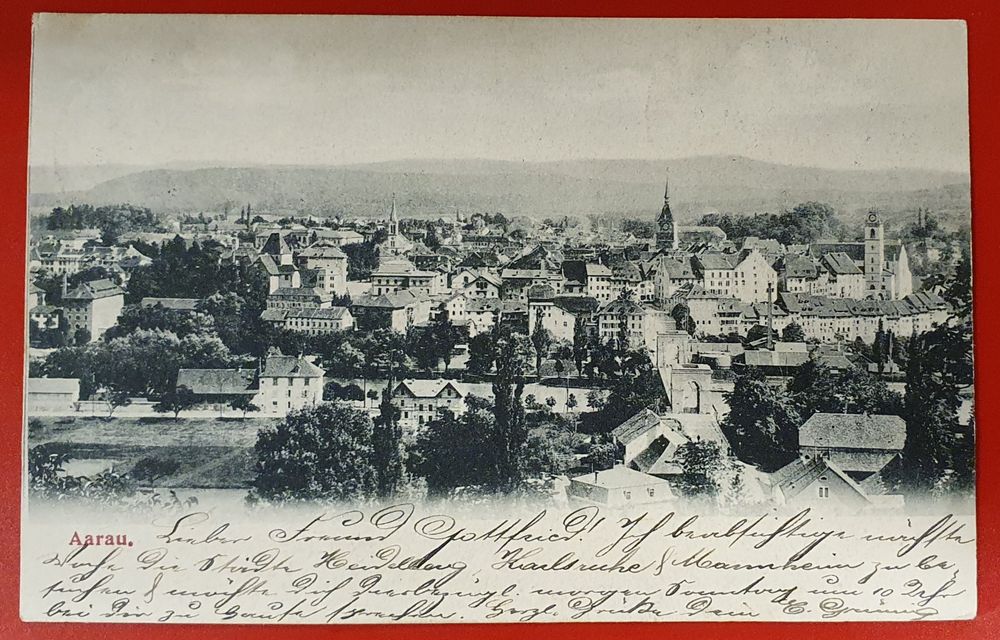 Aarau.
Lieber Freund Gottfried! Ich beabsichtige nächste
Woche die Städte Heidelberg, Karlsruhe & Mannheim zu be-
suchen & möchte Dich diesbezügl. morgen Sonntag um 10 Uhr
bei Dir zu Hause sprechen. Herzl. Grüsse Dein E.